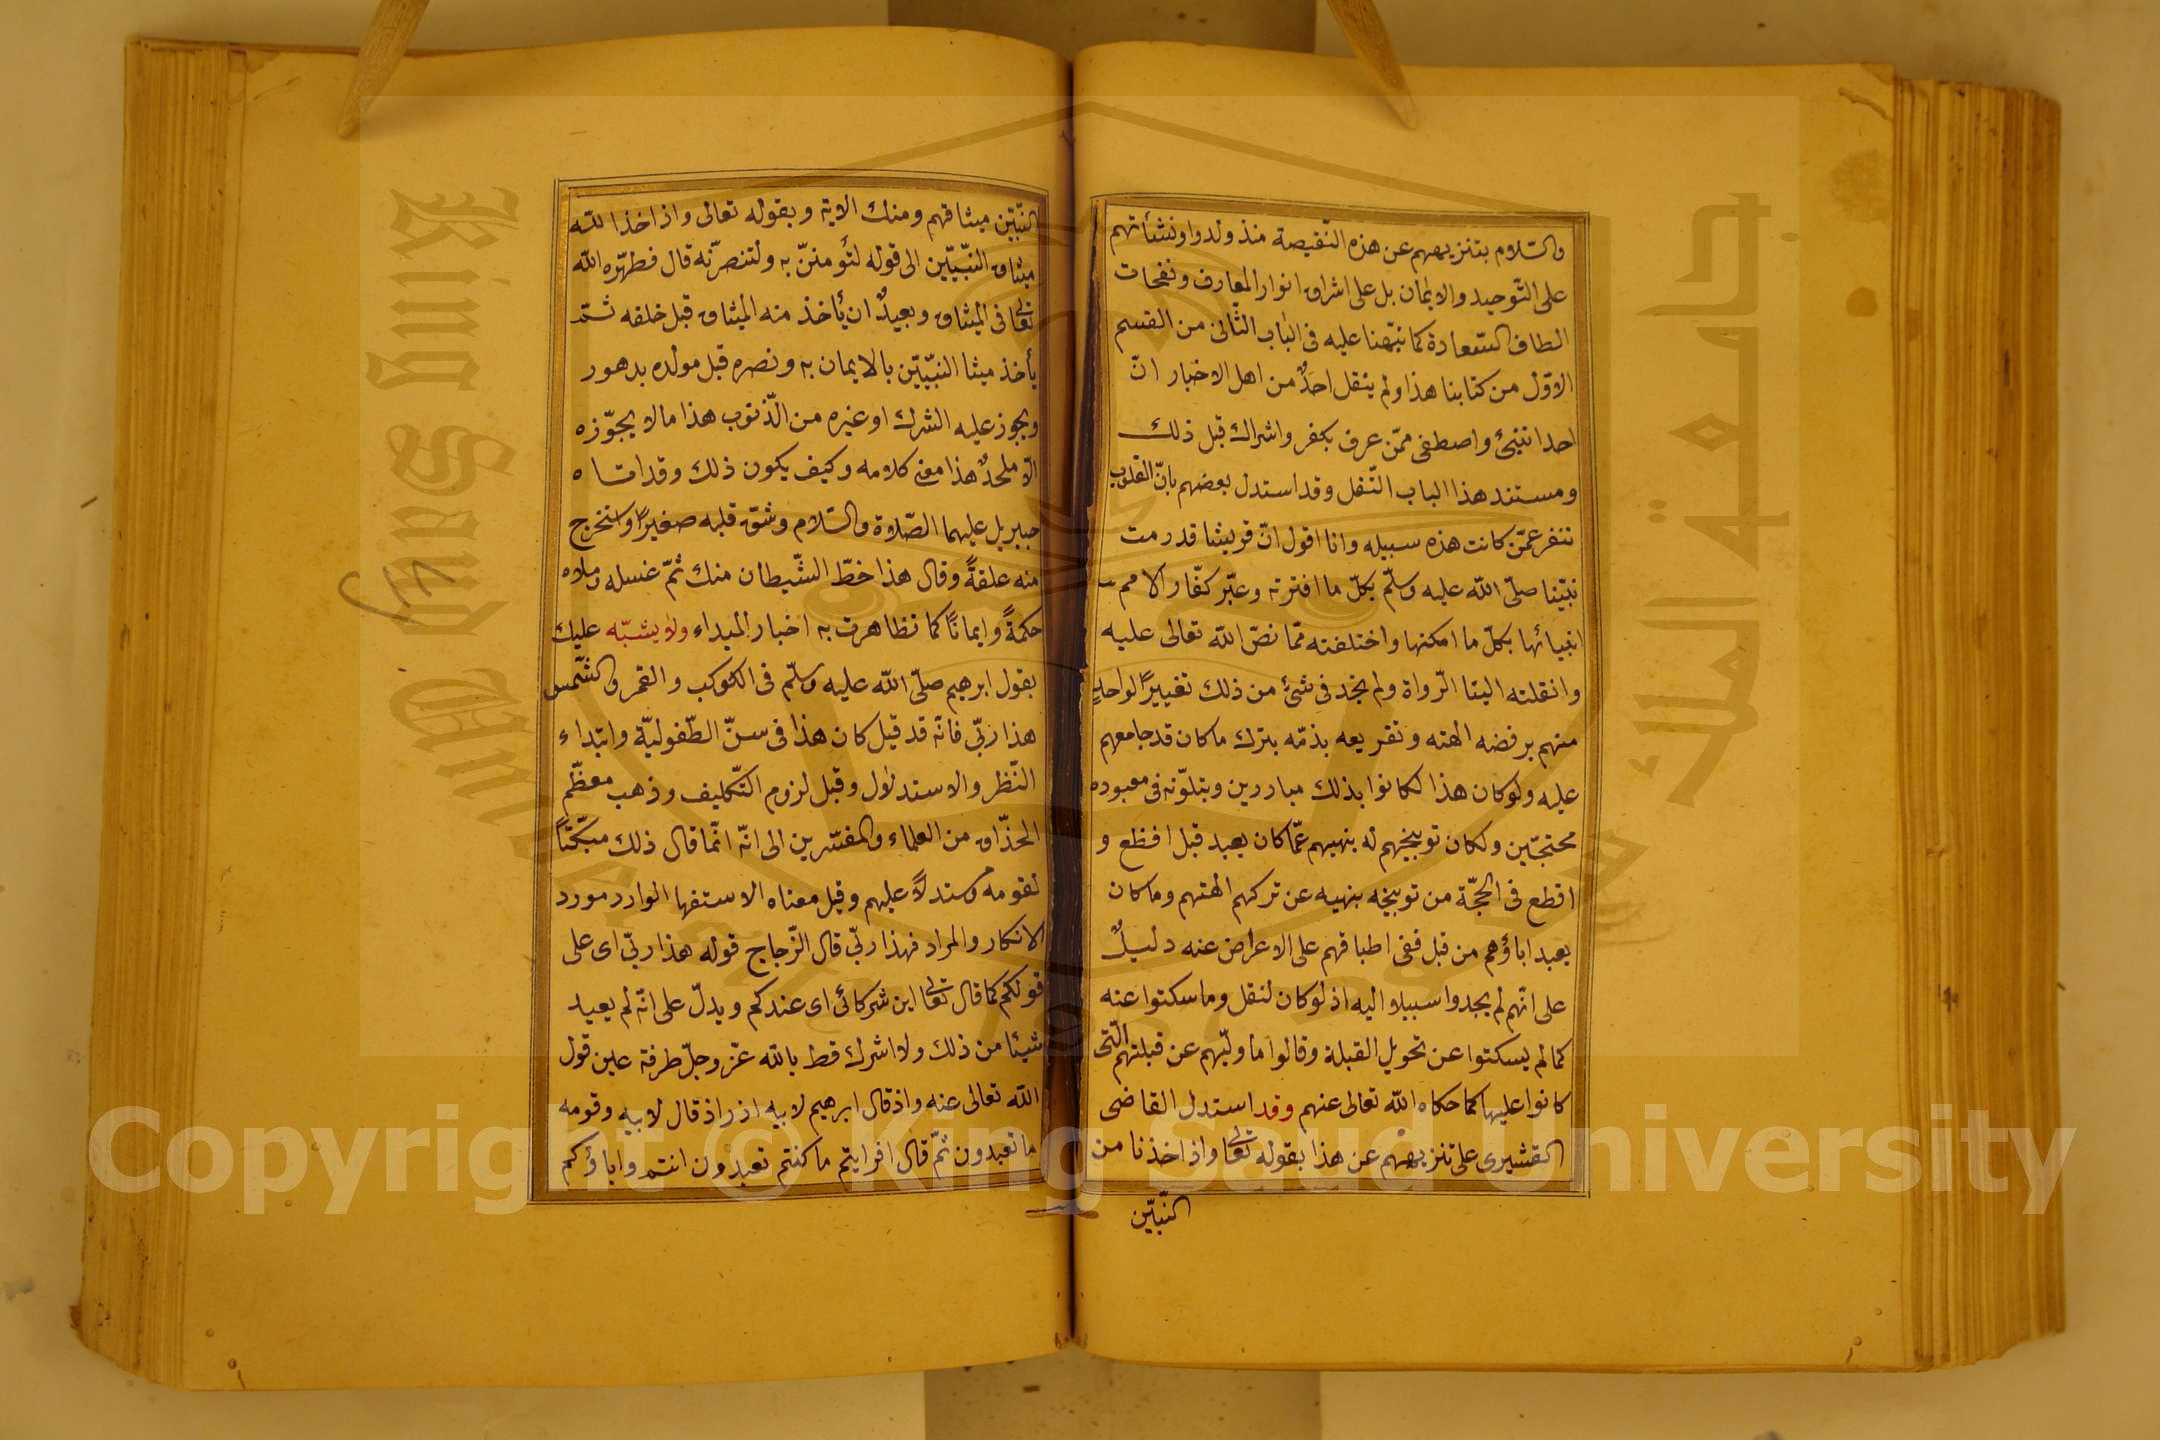 والسّلام بتنزيههم عن هذه النّقيصة منذ ولدوا ونشأتهم
على التّوحيد والايمان بل على اشراق انوار المعارف ونفحات
الطاف السّعادة كما نبّهنا عليه فى الباب الثّانى من القسم
الاوّل من كتابنا هذا ولم ينقل احدٌ من اهل الاخبار انّ
احدا نبّئ واصطفى ممّن عرف بكفر واشراك قبل ذلك
ومستند هذا الباب النّقل وقد استدل بعضهم بانّ القلوب
تنفر عمّن كانت هذه سبيله وانا اقول انّ قريشا قد رمت
نبيّنا صلّى اللّه عليه وسلّم بكلّ ما افترته وعيّر كفّار الامم
انبيائها بكلّ ما امكنها واختلقته ممّا نصّ اللّه تعالى عليه
وانقلته الينا الرّواة ولم نجد فى شئ من ذلك تغييرًا لواحد
منهم برفضه الهته وتقريعه بذمّه بترك ما كان قد جامعهم
عليه ولو كان هذا لكانوا بذلك مبادرين وبتلوّنه فى معبوده
محتجّين ولكان توبيخهم له بنهيهم عمّا كان يعبد قبل افظع و
اقطع فى الحجّة من توبيخه بنهيه عن تركهم الهتهم وما كان
يعبد اباؤهم من قبل ففى اطباقهم على الاعراض عنه دليلٌ
على انّهم لم يجدوا سبيلا اليه اذ لو كان لنقل وما سكتوا عنه
كما لم يسكتوا عن تحويل القبلة وقالوا ما ولّيهم عن قبلتهم الّتى
كانوا عليها كما حكاه اللّه تعالى عنهم وقد استدل القاضى
القشيرى على تنزيههم عن هذا بقوله تعالى واذ اخذنا من
النّبيّين
النّبيّين ميثاقهم ومنك الاية وبقوله تعالى واذ اخذ اللّه
ميثاق النّبيّين الى قوله لتؤمننّ به ولتنصرنّه قال فطهّره اللّه
تعالى فى الميثاق وبعيدٌ ان يأخذ منه الميثاق قبل خلقه ثمّ
يأخذ ميثا النبيّين بالايمان به ونصره قبل مولده بدهور
ويجوز عليه الشرك او غيره من الذّنوب هذا مالا يجوّزه
الّا ملحدٌ هذا معنى كلامه وكيف يكون ذلك وقد اتاه
جبريل عليهما الصّلاة والسّلام وشق قلبه صغيرًا واستخرج
منه علقةً وقال هذا حظّ الشّيطان منك ثمّ غسله وملاه
حكمةً وايمانًا كما تظاهرت به اخبار المبداء ولا يشبّه عليك
بقول ابرهيم صلّى اللّه عليه وسلّم فى الكوكب والقمر والشّمس
هذا ربّى فانّه قد قيل كان هذا فى سنّ الطّفوليّة وابتداء
النّظر والاستدلال وقبل لزوم التّكليف وذهب معظّم
الحذّاق من العلماء والمفسّرين الى انّه انّما قال ذلك مبكّتًا
لقومه ومستدلاً عليهم وقيل معناه الاستفها الوارد مورد
الانكار والمراد فهذا ربّى قال الزّجاج قوله هذا ربّى اى على
قولكم كما قال تعالى اين شركائى اى عندكم ويدلّ على انّه لم يعبد
شيئا من ذلك ولا اشرك قط باللّه عزّ وجلّ طرفة عين قول
اللّه تعالى عنه واذ قال ابرهيم لابيه اذر اذ قال لابيه وقومه
ما تعبدون ثمّ قال افرايتم ما كنتم تعبدون انتم واباؤكم
King Saud University
جامعة الملك سعود
Copyright © King Saud University